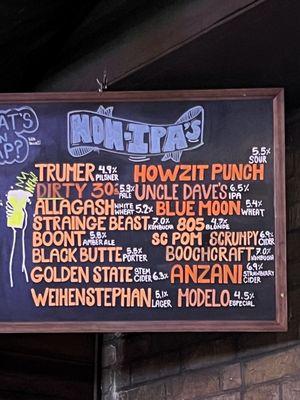 WHAT'S
ON
TAP?
NON-IPA's
TRUMER 4.9% PILSNER
HOWZIT PUNCH 5.5% SOUR
DIRTY 30's 5.3% PALE
UNCLE DAVE'S 6.5% IPA
ALLAGASH WHITE WHEAT 5.2%
BLUE MOON 5.4% WHEAT
STRAINGE BEAST 7.0% KOMBUCHA
805 4.7% BLONDE
BOONT 5.8% AMBER ALE
SC POM SCRUMPY 6.9% CIDER
BLACK BUTTE 5.5% PORTER
BOOCHCRAFT 7.0% KOMBUCHA
GOLDEN STATE STEM CIDER 6.3%
ANZANI 6.9% STRAWBERRY CIDER
WEIHENSTEPHAN 5.1% LAGER
MODELO 4.5% ESPECIAL